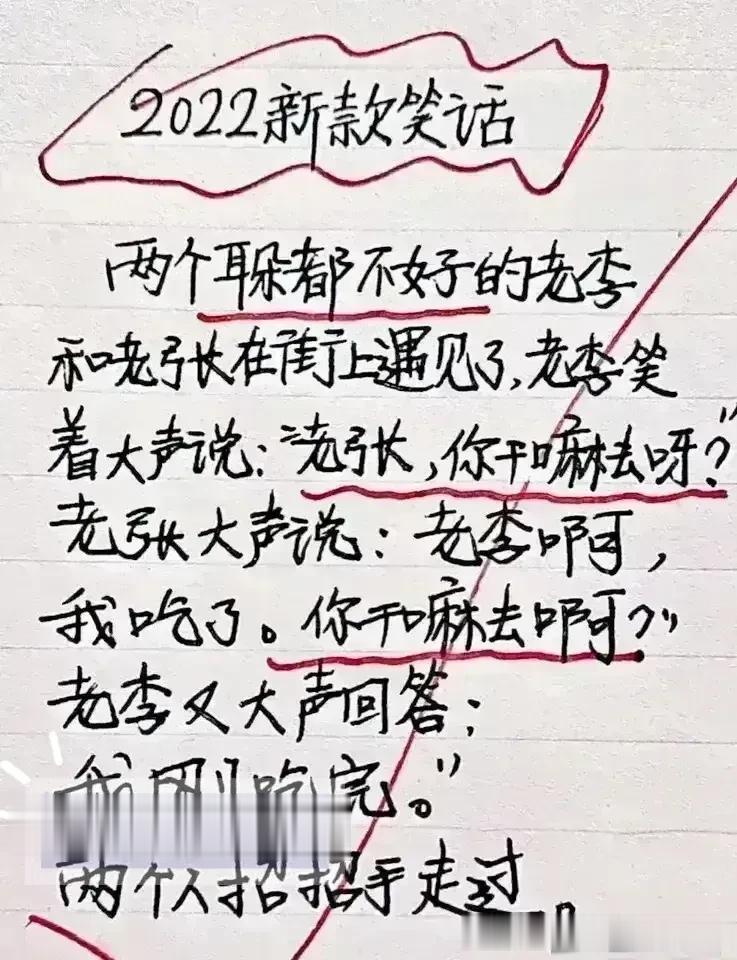 2022新款笑话
两个耳朵都不好的老李
和老张在街上遇见了,老李笑
着大声说:“老张,你干嘛去呀?”
老张大声说:老李啊,
我吃了。你干嘛去啊?”
老李又大声回答:
我刚吃完。”
两个人招招手走过